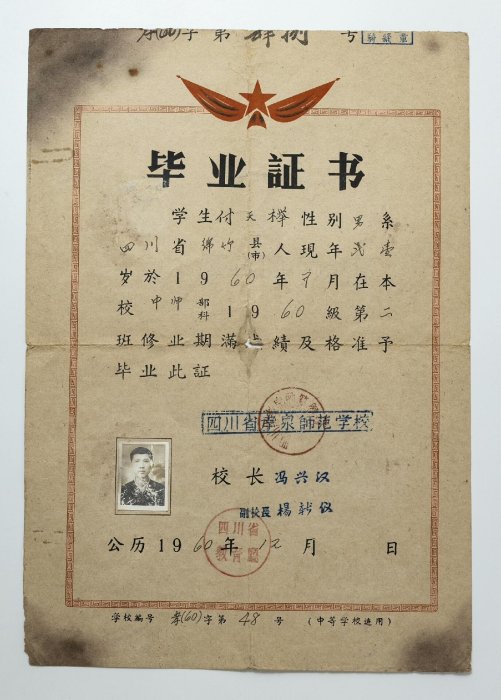 孝(60)字 第 肆捌 号
毕业証书
学生付天榉性别男系
四川省绵竹县(市)人現年弍壹
岁於1960年7月在本
校中师部科1960級第二
班修业期滿成績及格准予
毕业此証
四川省孝泉師范学校
校长冯兴汉
副校長 楊
四川省
教育廳
公历1960年 月 日
学校编号 孝(60)字第 48 号 (中等学校适用)